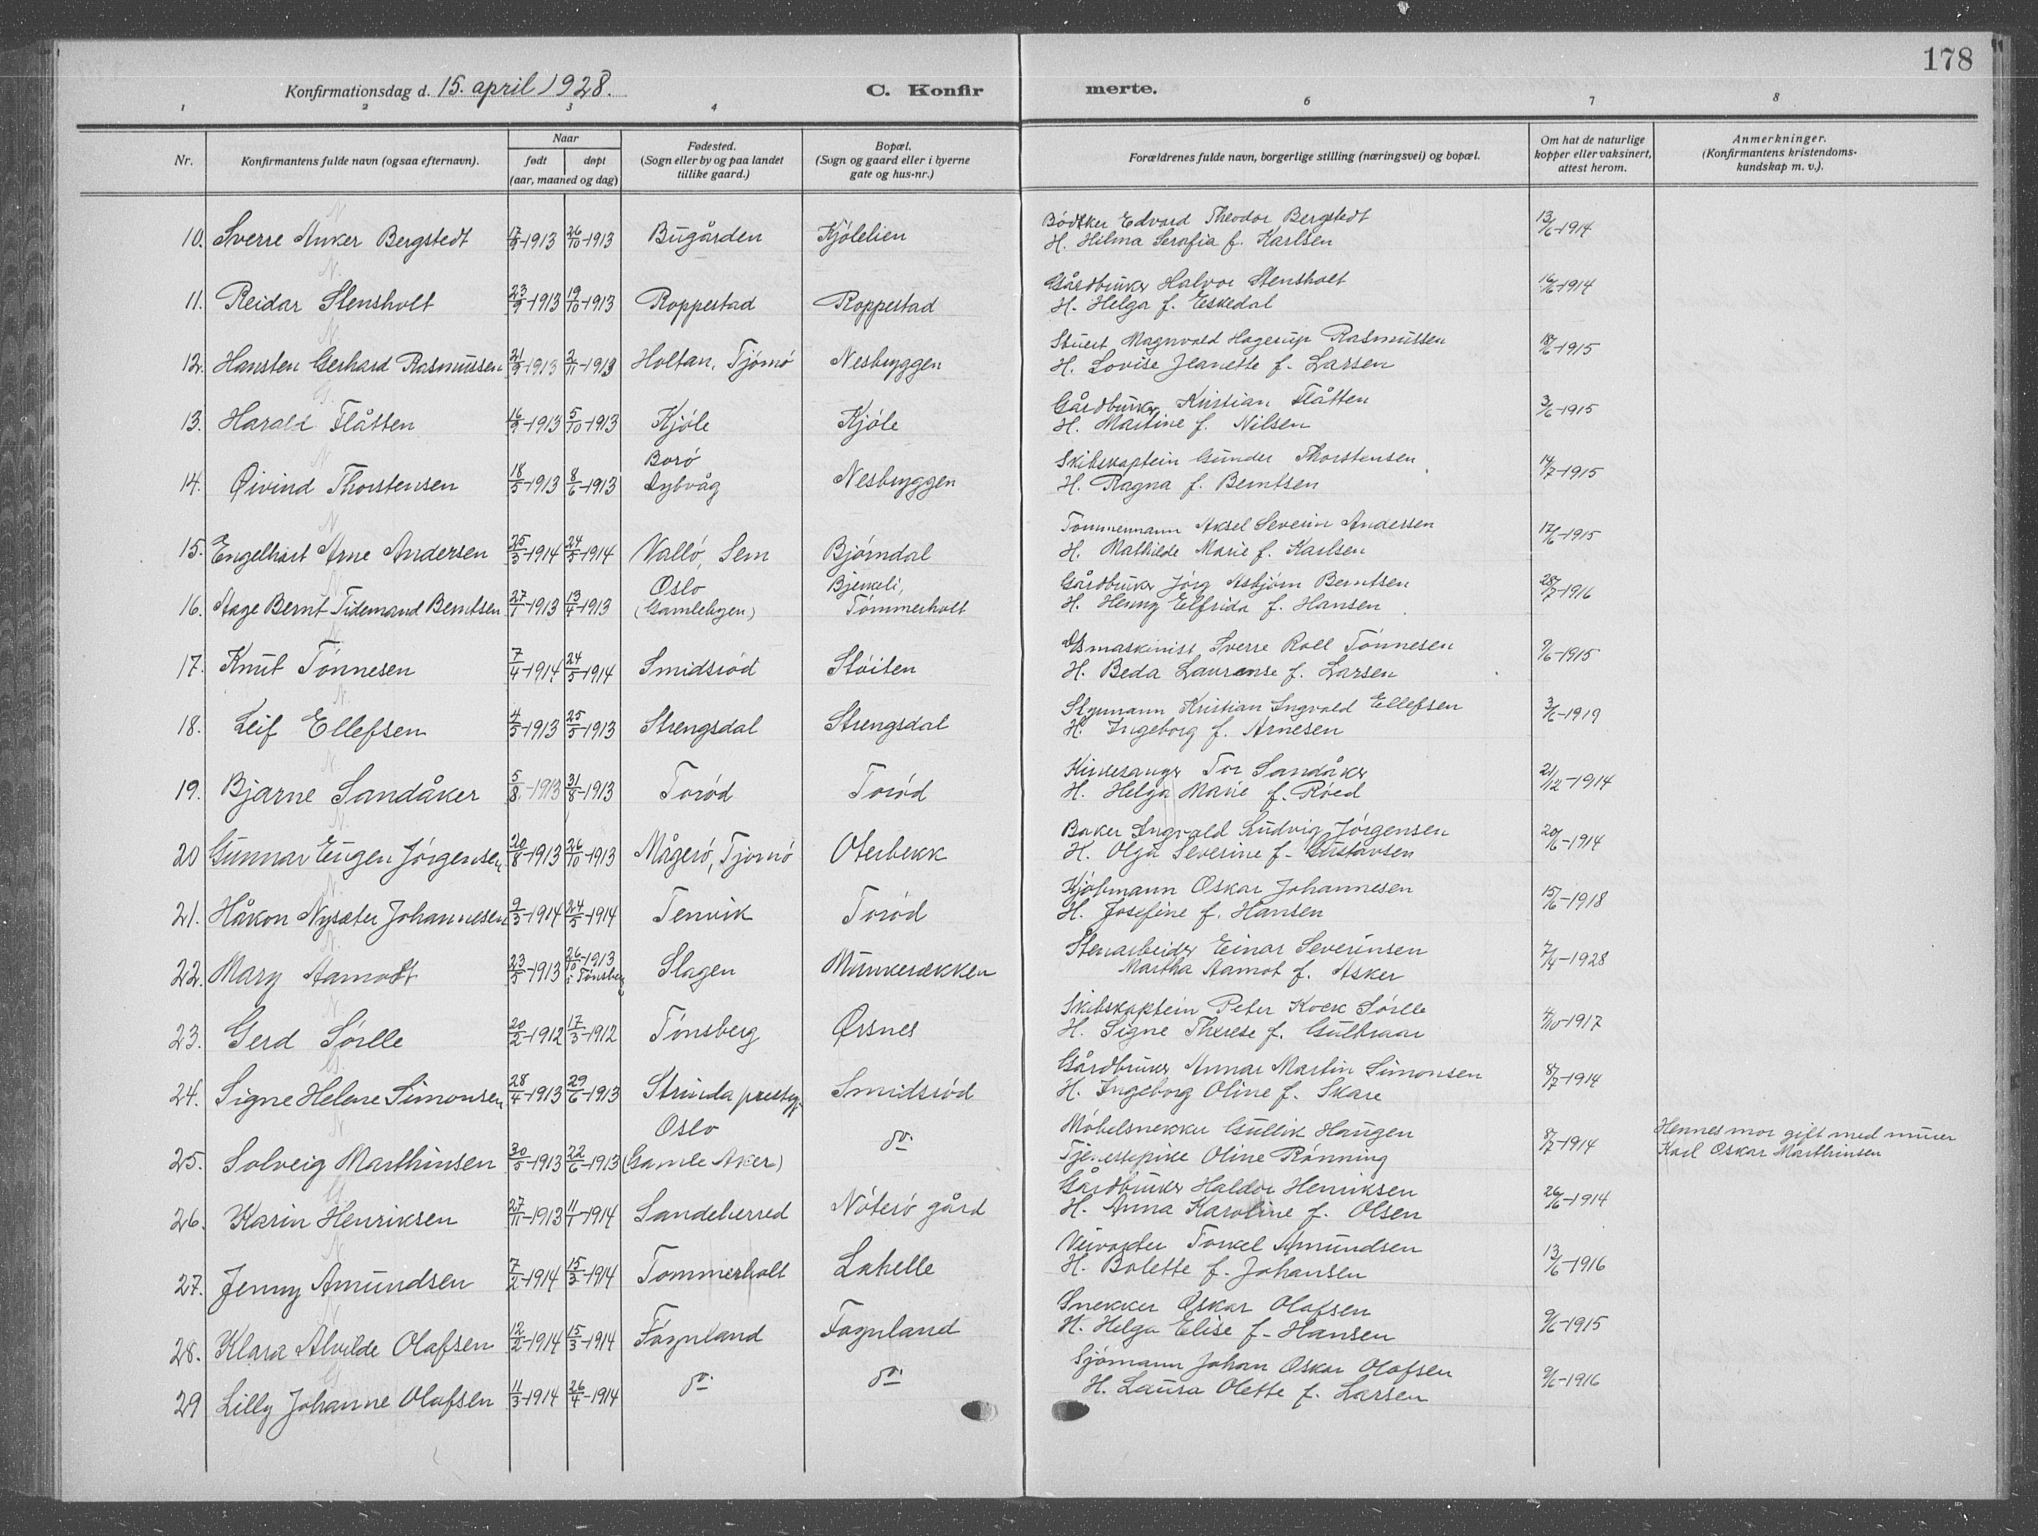 178
Konfirmationsdag d. 15. april 1928. C. Konfirmerte.
1 2 3 4 6 7 8
Nr. Konfirmantens fulde navn (ogsaa efternavn). Naar født døpt (aar, maaned og dag) Fødested. (Sogn eller by og paa landet tillike gaard.) Bopæl. (Sogn og gaard eller i byerne gate og hus-nr.) Forældrenes fulde navn, borgerlige stilling (næringsvei) og bopæl. Om hat de naturlige kopper eller vaksinert, attest herom. Anmerkninger. (Konfirmantens kristendomskundskap m. v.).
10. Sverre Anker Bergstedt 17/9-1913 26/10-1913 Bugården Kjölelien Bödtker Edvard Theodor Bergstedt 13/6-1914
H. Hilma Serafia f. Karlsen
11. Reidar Stensholt 23/9-1913 19/10-1913 Roppestad Roppestad Gårdbruker Halvor Stensholt 16/6-1914
H. Helga f. Eskedal
12. Hansten Gerhard Rasmussen 21/9-1913 2/11-1913 Holtan, Tjömö Nesbryggen Stuert Magnvald Hagerup Rasmussen 18/6-1915
H. Lovise Jeanette f. Larsen
13. Harald Flåtten 16/9-1913 5/10-1913 Kjöle Kjöle Gårdbruker Kristian Flåtten 3/6-1915
H. Martine f. Nilsen
14. Øivind Thorstensen 18/5-1913 8/6-1913 Borö Dybvåg Nesbryggen Skibskaptein Gunder Thorstensen 14/7-1915
H. Ragna f. Berntsen
15. Engelhart Arne Andersen 25/3-1914 24/5-1914 Vallö, Sem Bjørndal Tømmermann Aksel Severin Andersen 17/6-1915
H. Mathilde Marie f. Karlsen
16. Aage Bernt Tidemand Berntsen 27/1-1913 13/4-1913 Oslo (Gamlebyen) Bjerkeli, Tömmerholt Gårdbruker Jörg Asbjörn Berntsen 28/7-1916
H. Henny Elfrida f. Hansen
17. Knut Tönnesen 7/4-1914 24/5-1914 Smidsröd Stöiten Ismaskinist Sverre Roll Tönnesen 9/6-1915
H. Beda Laurense f. Larsen
18. Leif Ellefsen 4/5-1913 25/5-1913 Strengsdal Strengsdal Styrmann Kristian Ingvald Ellefsen 3/6-1919
H. Ingeborg f. Arnesen
19. Bjarne Sandåker 5/8-1913 31/8-1913 Torød Torød Kirkesanger Tor Sandåker 21/12-1914
H. Helga Marie f. Röed
20 Gunnar Eugen Jörgensen 20/8-1913 26/10-1913 Mågerö, Tjömö Oterbekk Baker Ingvald Ludvig Jörgensen 20/6-1914
H. Olga Severine f. Gustavsen
21. Håkon Nysæter Johannesen 9/3-1914 24/5-1914 Tenvik Torød Kjöpmann Oskar Johannesen 15/6-1918
H. Josefine f. Hansen
22. Mary Aamodt 23/5-1913 26/10-1913 i Tönsberg Slagen Munkerekken Stenarbeider Einar Severinsen 7/4-1928
Martha Aamot f. Asker
23. Gerd Sörlle 20/2-1912 17/3-1912 Tönsberg Ørsnes Skibskaptein Peter Kock Sörlle 4/10-1917
H. Signe Therese f. Gulbraar
24. Signe Helene Simonsen 28/4-1913 29/6-1913 Strinda prestegj. Smidsröd Gårdbruker Annar Martin Simonsen 8/7-1914
H. Ingeborg Oline f. Skare
25. Solveig Marthinsen 30/5-1913 22/6-1913 Oslo (Gamle Aker) do. Möbelsnekker Gullik Haugen 8/7-1914 Hennes mor gift med murer
Tjenestepike Oline Rønning Karl Oskar Marthinsen
26. Karin Henriksen 27/11-1913 11/1-1914 Sandeherred Nöterö gård Gårdbruker Haldor Henriksen 26/6-1914
H. Anna Karoline f. Olsen
27. Jenny Amundsen 7/2-1914 15/3-1914 Tommerholt Lahelle Veivokter Torkel Amundsen 13/6-1916
H. Bolette f. Johansen
28. Klara Alvilde Olafsen 12/2-1914 15/3-1914 Föynland Föynland Snekker Oskar Olafsen 9/6-1915
H. Helga Elise f. Hansen
29 Lilly Johanne Olafsen 11/3-1914 26/4-1914 do. do. Sjömann Johan Oskar Olafsen 9/6-1916
H. Laura Olette f. Larsen